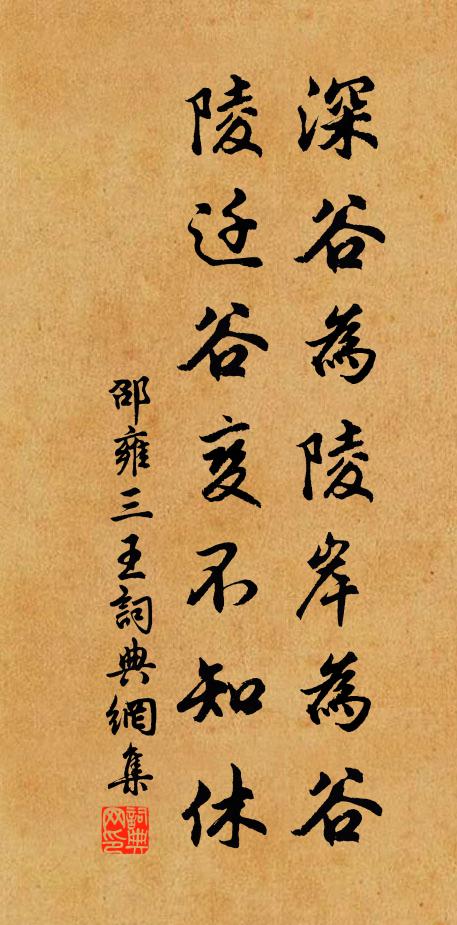 深谷為陵岸為谷
陵迁谷变不知休
邵雍三王詞典網集
詞典网印